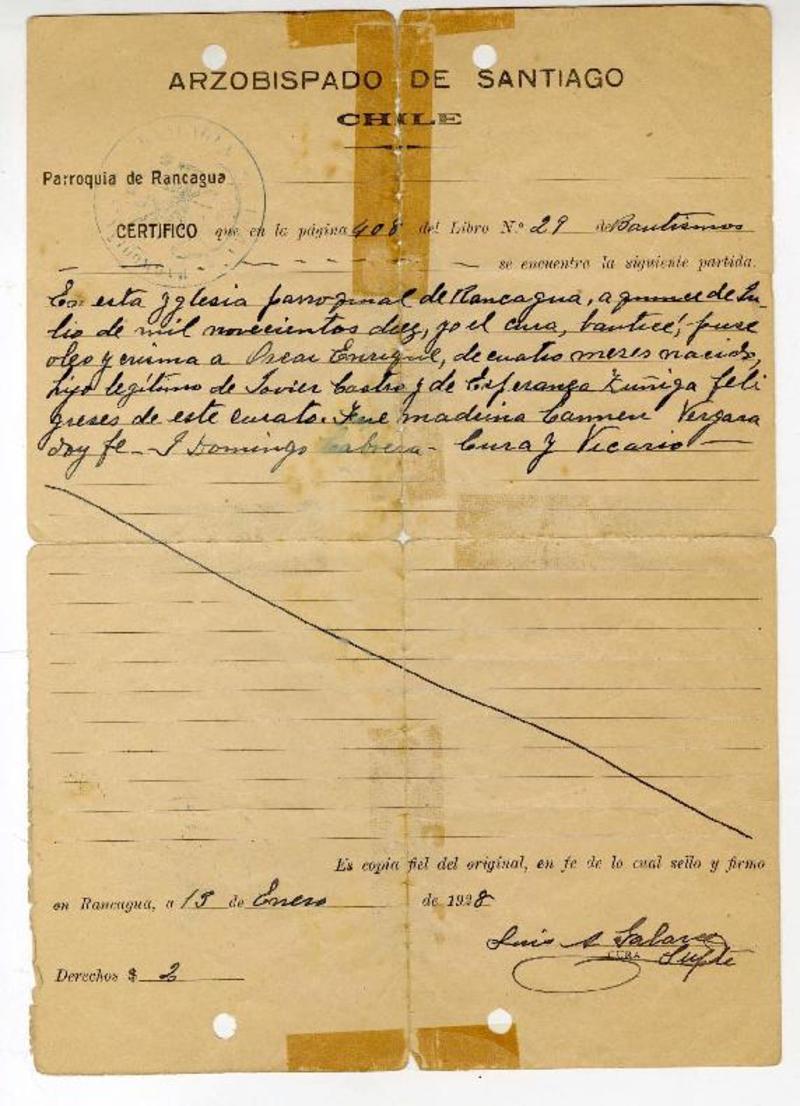 ARZOBISPADO DE SANTIAGO
CHILE
Parroquia de Rancagua
CERTIFICO que en la página 408 del Libro N.º 29 de Bautismos
se encuentra la siguiente partida.
En esta Yglesia parroquial de Rancagua, a quince de Ju-
lio de mil novecientos diez, yo el cura, bauticé, puse
oleo y crisma a Oscar Enrique, de cuatro meses nacido,
hijo legítimo de Javier Castro y de Esperanza Zúñiga feli
greses de este curato. Fue madrina Carmen Vergara
doy fe - Domingo Cabrera - Cura y Vicario
Es copia fiel del original, en fe de lo cual sello y firmo
en Rancagua, a 15 de Enero de 1928
Luis A
CURA
Derechos $ 2